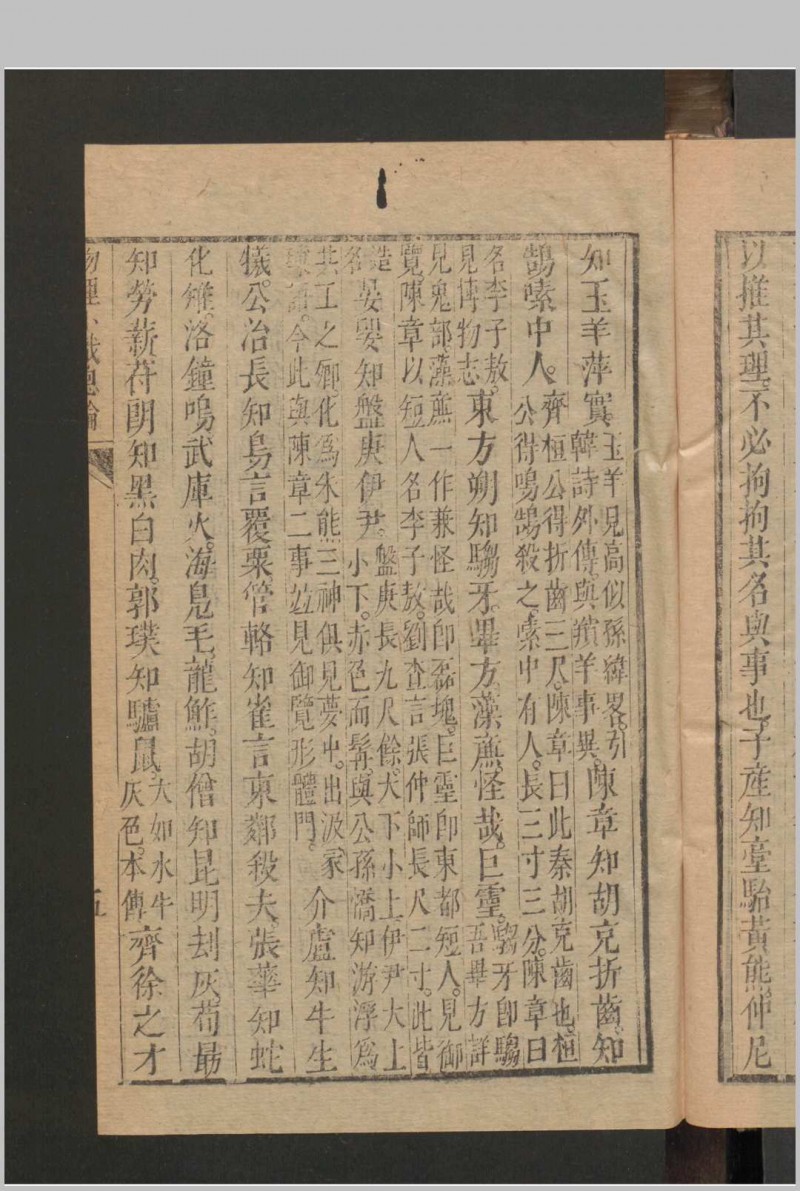 以推其理。不必拘拘其名與事也。子産知臺駘黃熊。仲尼
知玉羊萍實
玉羊見高似孫緯畧。引
韓詩外傳。與羵羊事異。
陳章知胡克折齒。知
鵠嗉中人。
齊桓公得折齒三尺。陳章曰此秦胡克齒也。桓
公得鳴鵠殺之。嗉中有人。長三寸三分。陳章曰
名李子敖。
見博物志。
東方朔知騶牙。畢方。藻廉。怪哉。巨靈。
騶牙卽騶
吾畢方詳
見鬼部。藻廉一作兼怪哉卽磊塊。巨靈卽東都短人。見御
覽。陳章以短人名李子敖。劉杳言張仲師長尺二寸。此皆
造
名
晏嬰知盤庚伊尹。
盤庚長九尺餘。大下小上。伊尹大上
小下。赤色而髯。與公孫僑知游浮爲
共工之卿。化爲朱熊三神俱見夢中。出汲冢
瑣語。今此與陳章二事竝見御覽形體門。
介盧知牛生
犧。公冶長知鳥言覆粟。管輅知雀言東鄰殺夫。張華知蛇
化雉。洛鐘鳴武庫火。海鳧毛。龍鮓。胡僧知昆明刦灰。荀勗
知勞薪。苻朗知黑白肉。郭璞知驢鼠
大如水牛
灰色。本傳
齊徐之才
物理小識總論
五